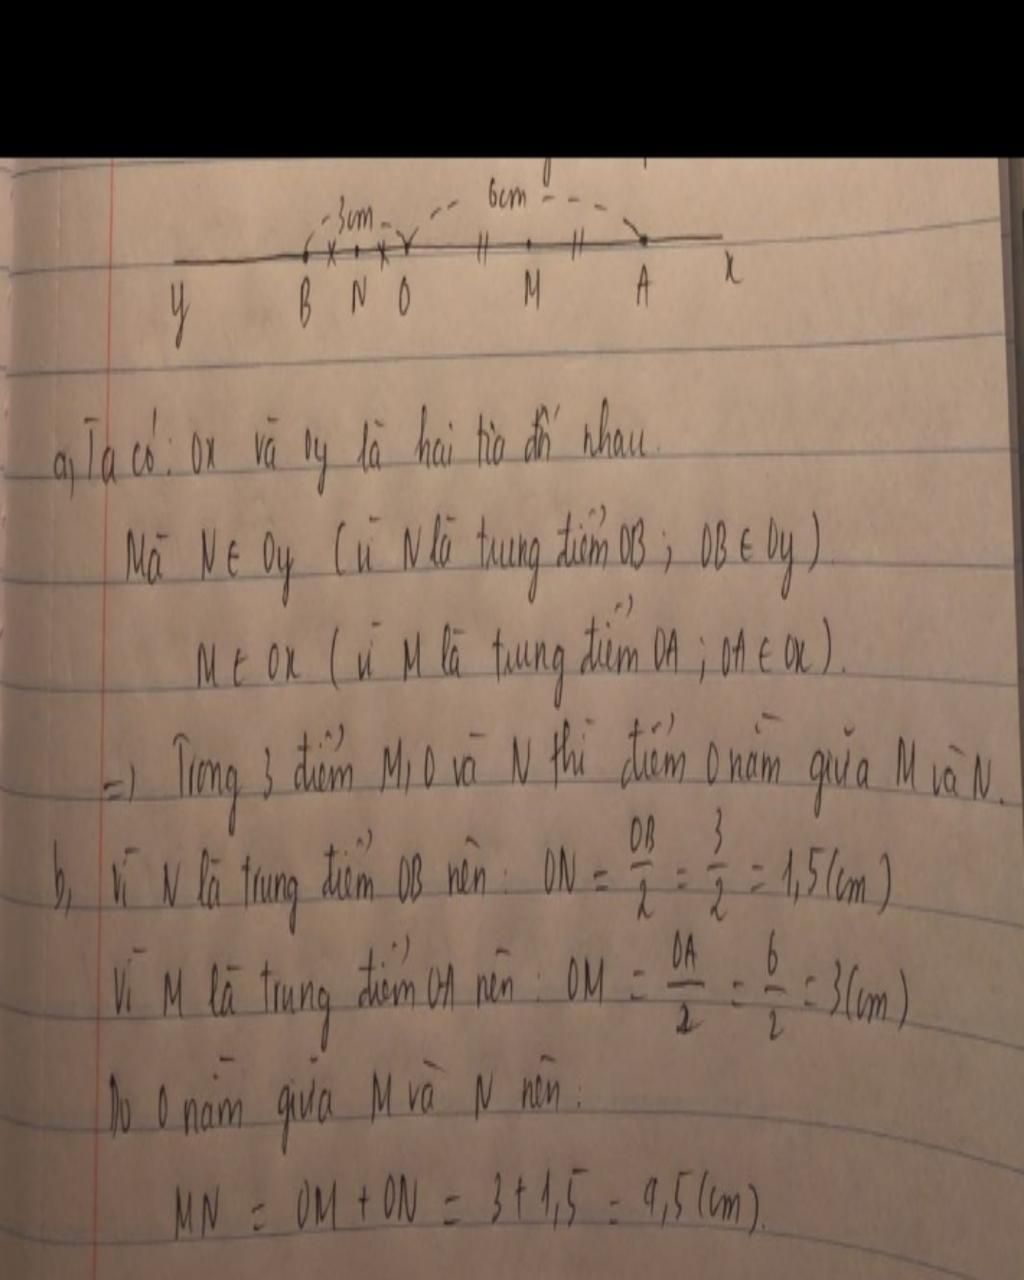 3cm 6cm
y B N O M A x
a, Ta có: Ox và Oy là hai tia đối nhau.
Mà N ∈ Oy (vì N là trung điểm OB; OB ∈ Oy)
M ∈ Ox (vì M là trung điểm OA; OA ∈ Ox).
=> Trong 3 điểm M, O và N thì điểm O nằm giữa M và N.
b, Vì N là trung điểm OB nên: ON = OB/2 = 3/2 = 1,5 (cm)
Vì M là trung điểm OA nên: OM = OA/2 = 6/2 = 3 (cm)
Do O nằm giữa M và N nên:
MN = OM + ON = 3 + 1,5 = 4,5 (cm).